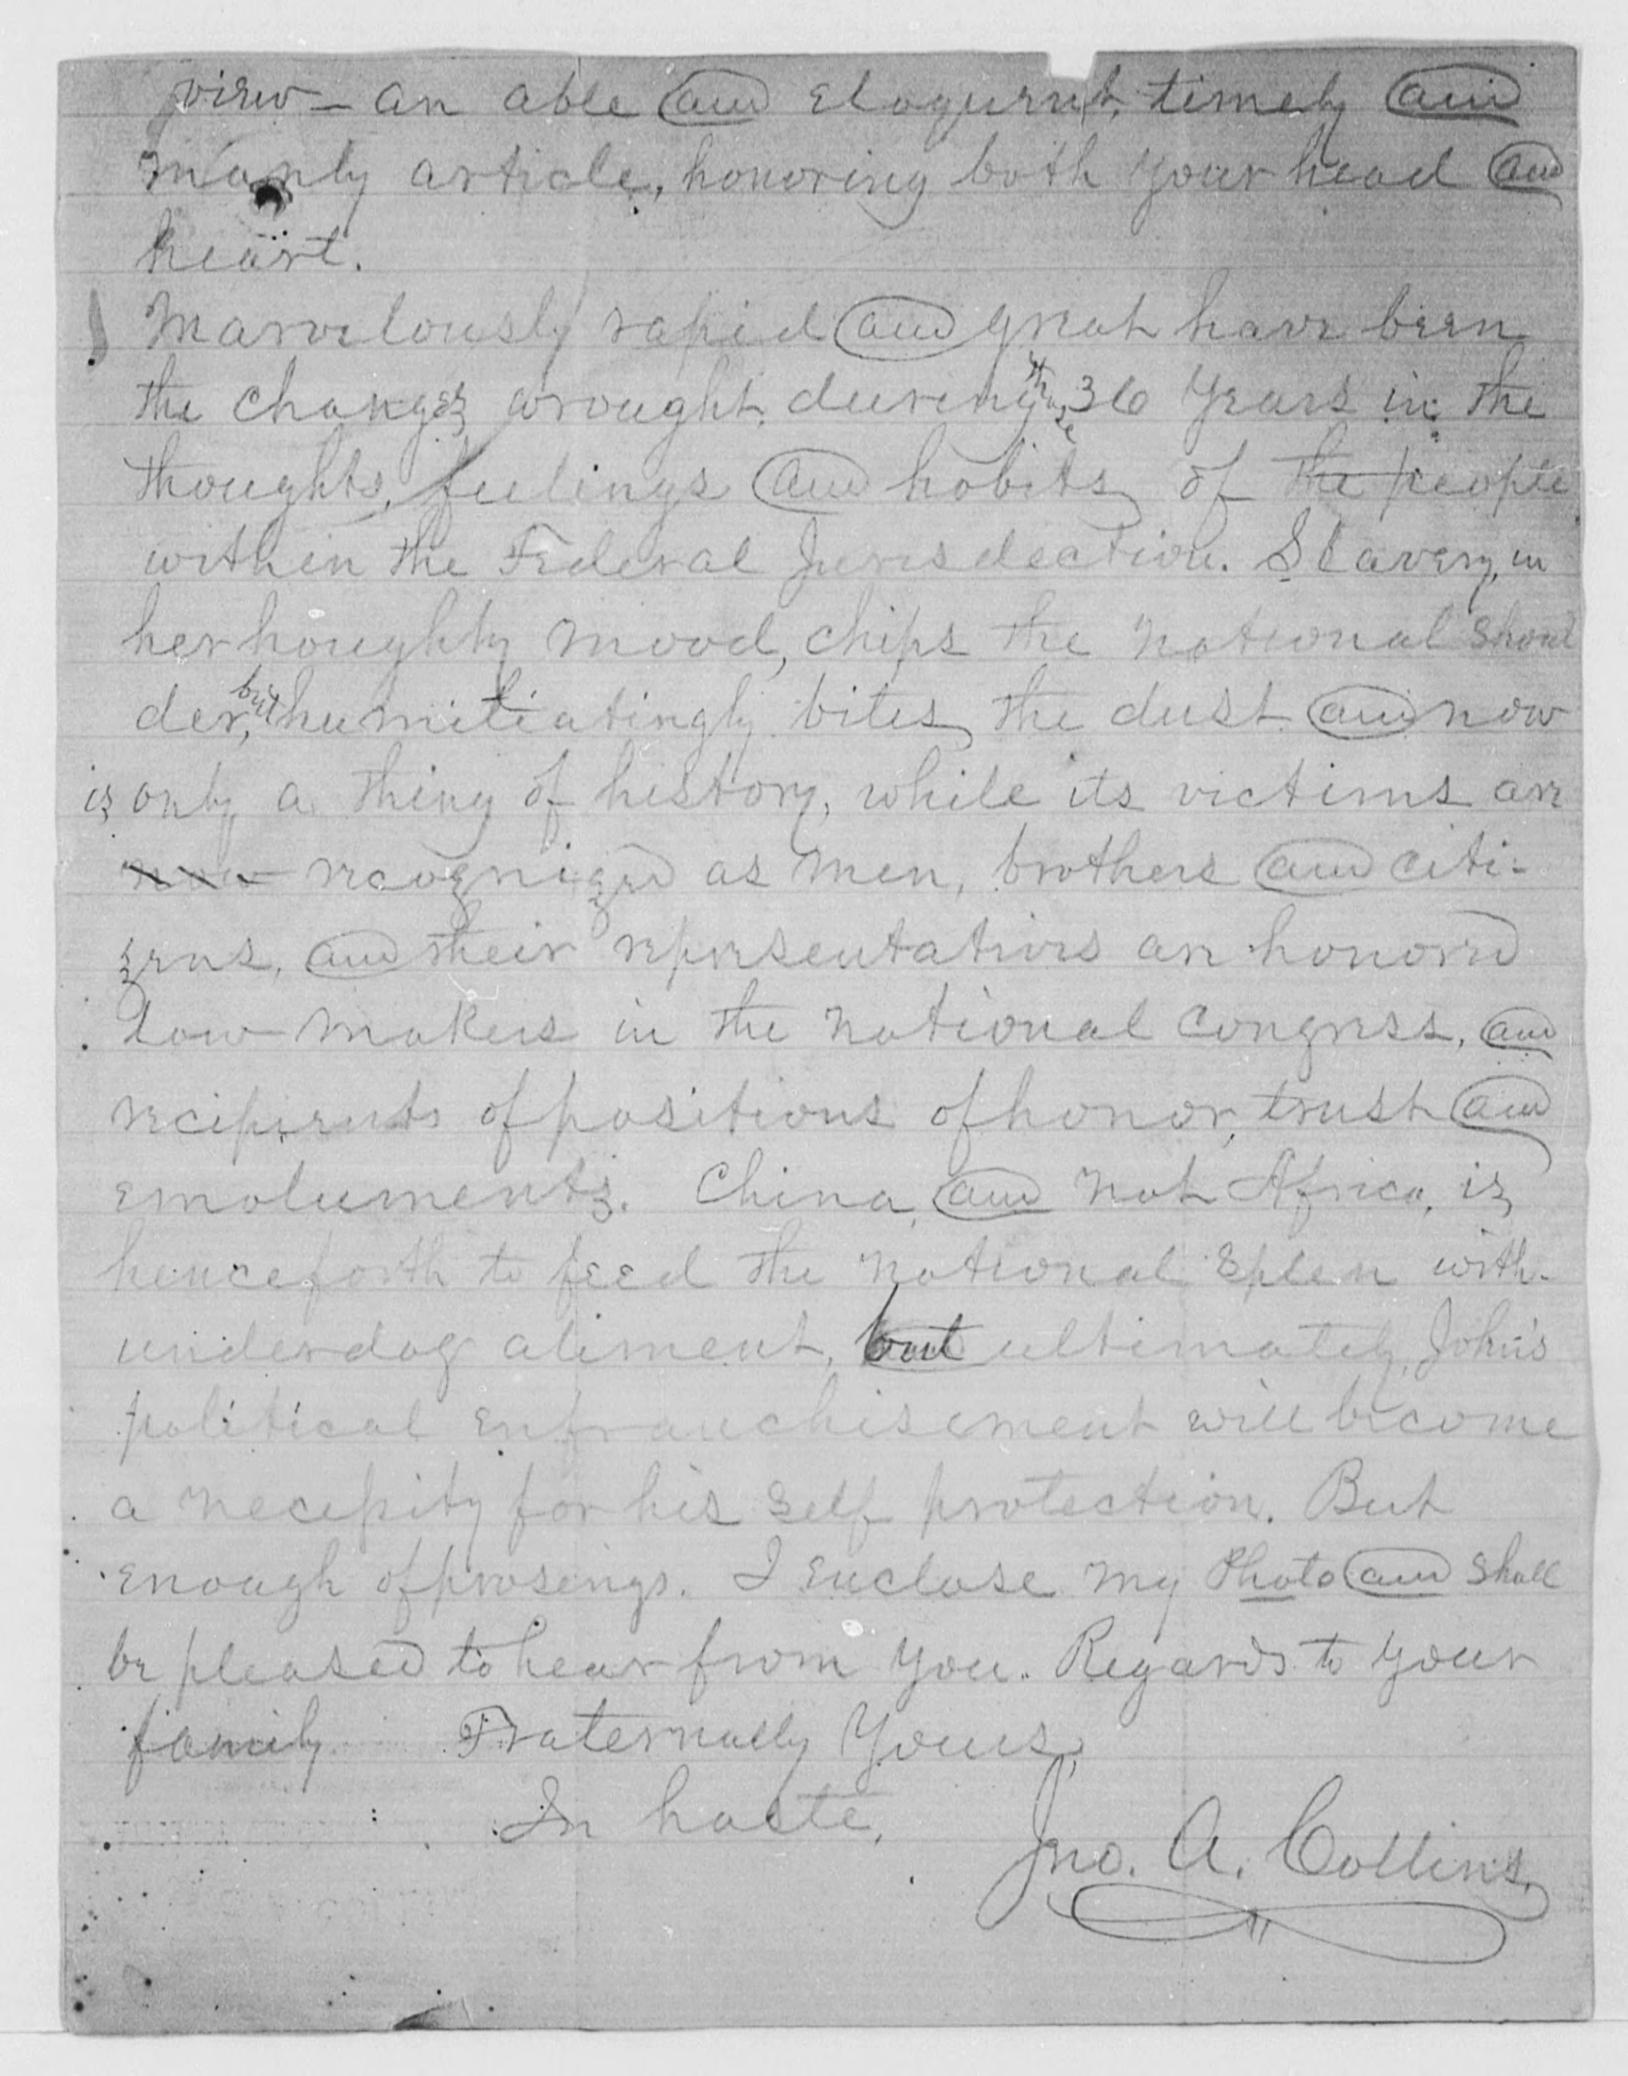 view – an able and eloquent, timely and
manly article, honoring both your head and
heart.
Marvelously rapid and great have been
the changes wrought, during these 36 years in the
thoughts, feelings and habits of the people
within the Federal Jurisdiction. Slavery, in
her houghty mood, chips the national shoul
der, but humiliatingly bites the dust and now
is only a thing of history, while its victims are
now recognized as men, brothers and citi-
zens, and their representatives are honored
law makers in the national congress, and
recipients of positions of honor, trust and
emoluments. China, and not Africa, is
henceforth to feed the national Splen with
underdog aliment, but ultimately, John's
political enfranchisement will become
a necessity for his self protection. But
enough of prosings. I enclose my Photo and shall
be pleased to hear from you. Regards to your
family Fraternally Yours,
In haste,
Jno. A. Collins.